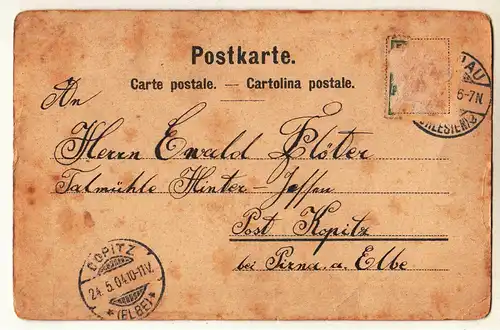 Postkarte.
Carte postale. — Cartolina postale.
An
Herrn Ewald Flöter
Talmühle Hinter-Jessen
Post Kopitz
bei Pirna a. Elbe
AU
6-7N.
CHLESIEN)
COPITZ
24.5.04.10-11V.
* (ELBE) *